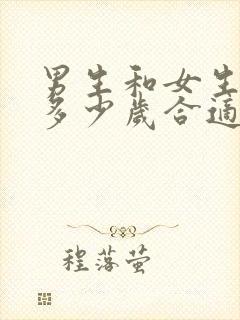 男生和女生
多少歲合適
程落萤